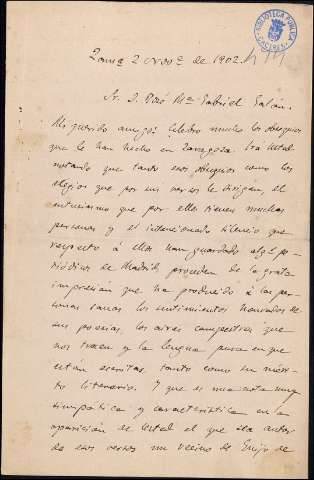 BIBLIOTECA PUBLICA
CACERES
2 Novᵉ de 1902.
Sr. D. José Mª Gabriel Galán.
Mi querido amigo: Celebro mucho los obsequios
que le han hecho en Zaragoza. Irá Usted
notando que tanto esos obsequios como los
elogios que por sus versos le dirigen, el
entusiasmo que por ellos tienen muchas
personas y el intencionado silencio que
respecto á ellos han guardado algⁿ pe-
riódicos de Madrid, proceden de la grata
impresión que ha producido á las per-
sonas sanas los sentimientos honrados de
sus poesías, los aires campestres que
nos traen y la lengua pura en que
están escritas, tanto como su méri-
to literario. Y que es una nota muy
simpática y característica en la
aparición de Usted el que sea autor
de esos versos un vecino de Guijo de